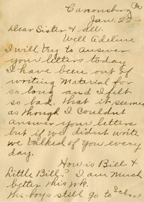 Canonsburg Pa
Jan. 23
Dear Sister & All.
Well Adeline
I will try to answer
your letters today
I have been out of
writing material for
so long and I felt
so bad. That it seemes
as though I couldnt
answer your letters
but if we didnt write
we talked of you every
day.
How is Bill &
Little Bill? I am much
better this wk.
The boys still go to school